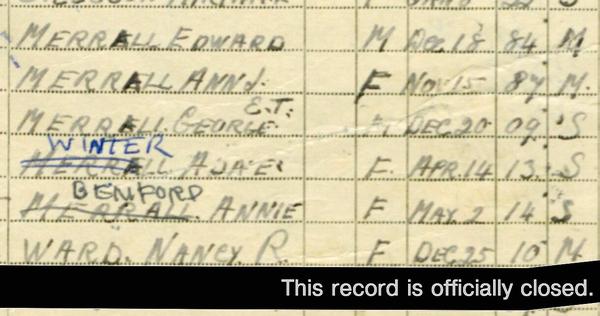 MERRELL EDWARD M DEC 18 84 M
MERRELL ANN J. F NOV 15 87 M.
E.T.
MERRELL GEORGE DEC 20 09 S
WINTER
MERRELL F. APR. 14 13 S
BENFORD
MERRALL ANNIE F MAY 2 14 S
WARD. NANCY R. F DEC 25 10 M
This record is officially closed.